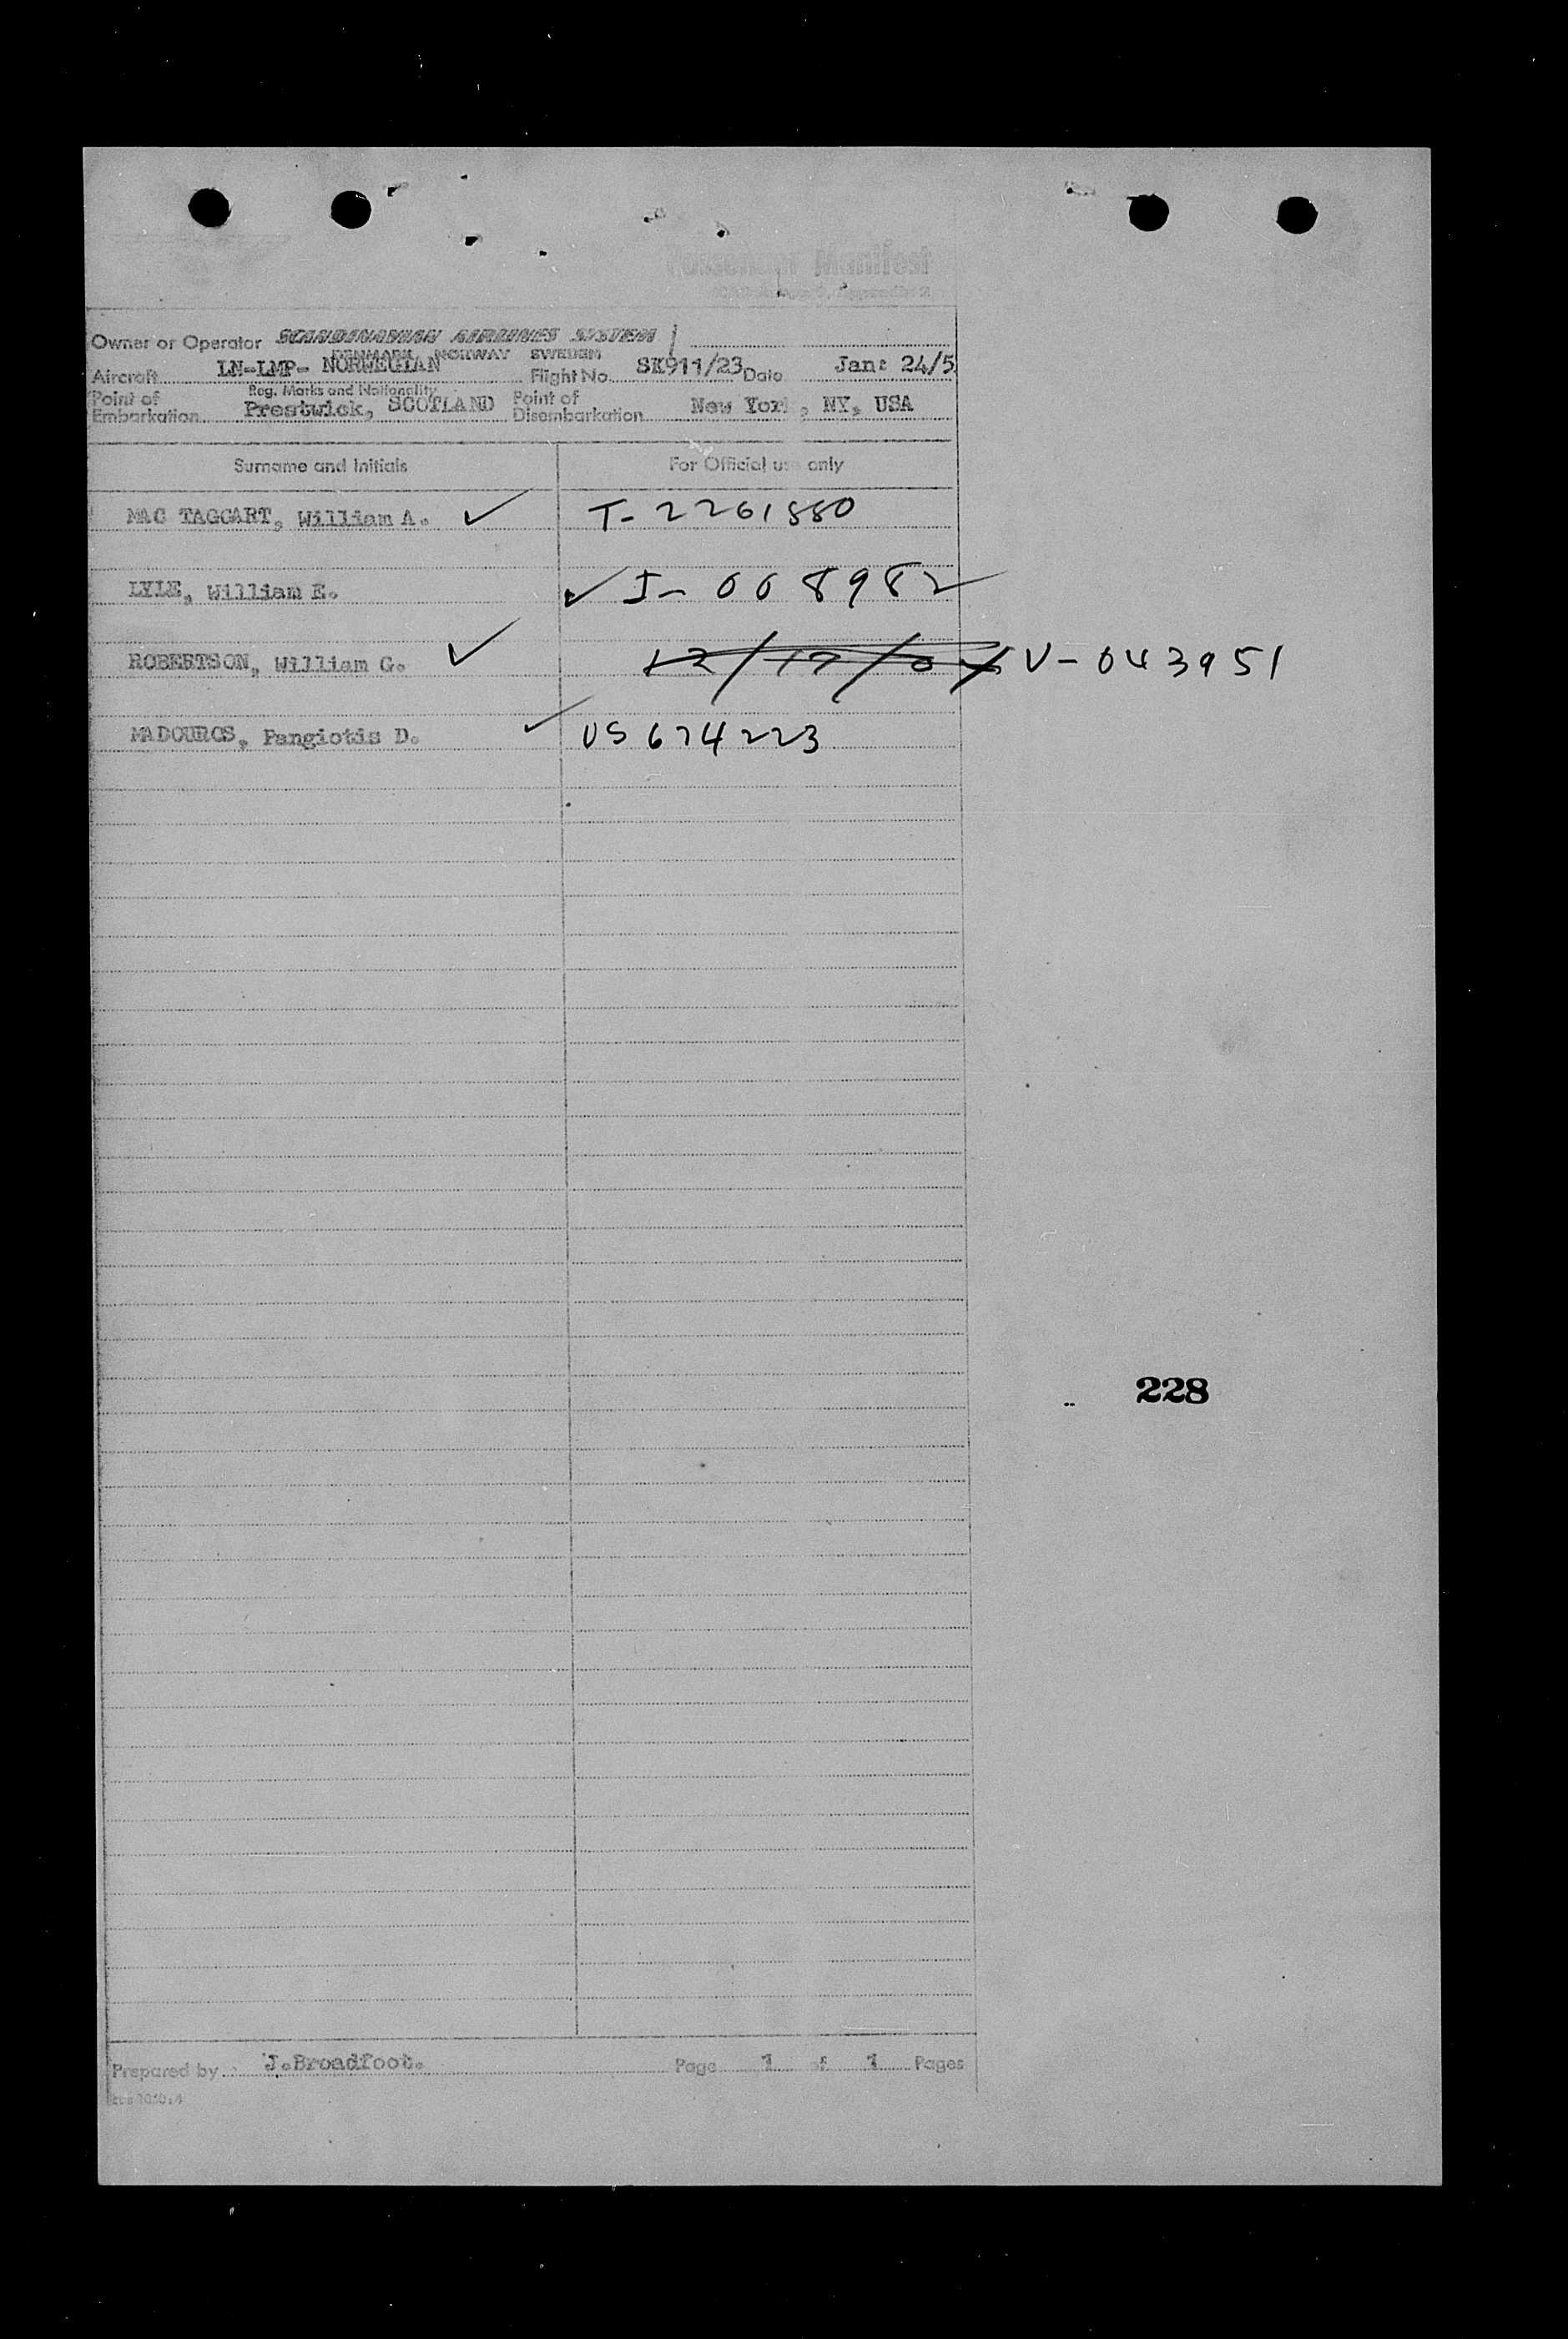 Passenger Manifest
Owner or Operator SCANDINAVIAN AIRLINES SYSTEM
DENMARK NORWAY SWEDEN
Aircraft LN-LMP- NORWEGIAN Flight No. SK911/23 Date Jan: 24/5
Reg. Marks and Nationality
Point of Embarkation Prestwick, SCOTLAND Point of Disembarkation New York, NY, USA
Surname and Initials For Official use only
MAC TAGGART, William A. ✓ T-2261880
LYLE, William E. ✓ I-008982
ROBERTSON, William G. ✓ V-043951
MADOUROS, Pangiotis D. ✓ US674223
228
Prepared by J.Broadfoot. Page 1 of 1 Pages